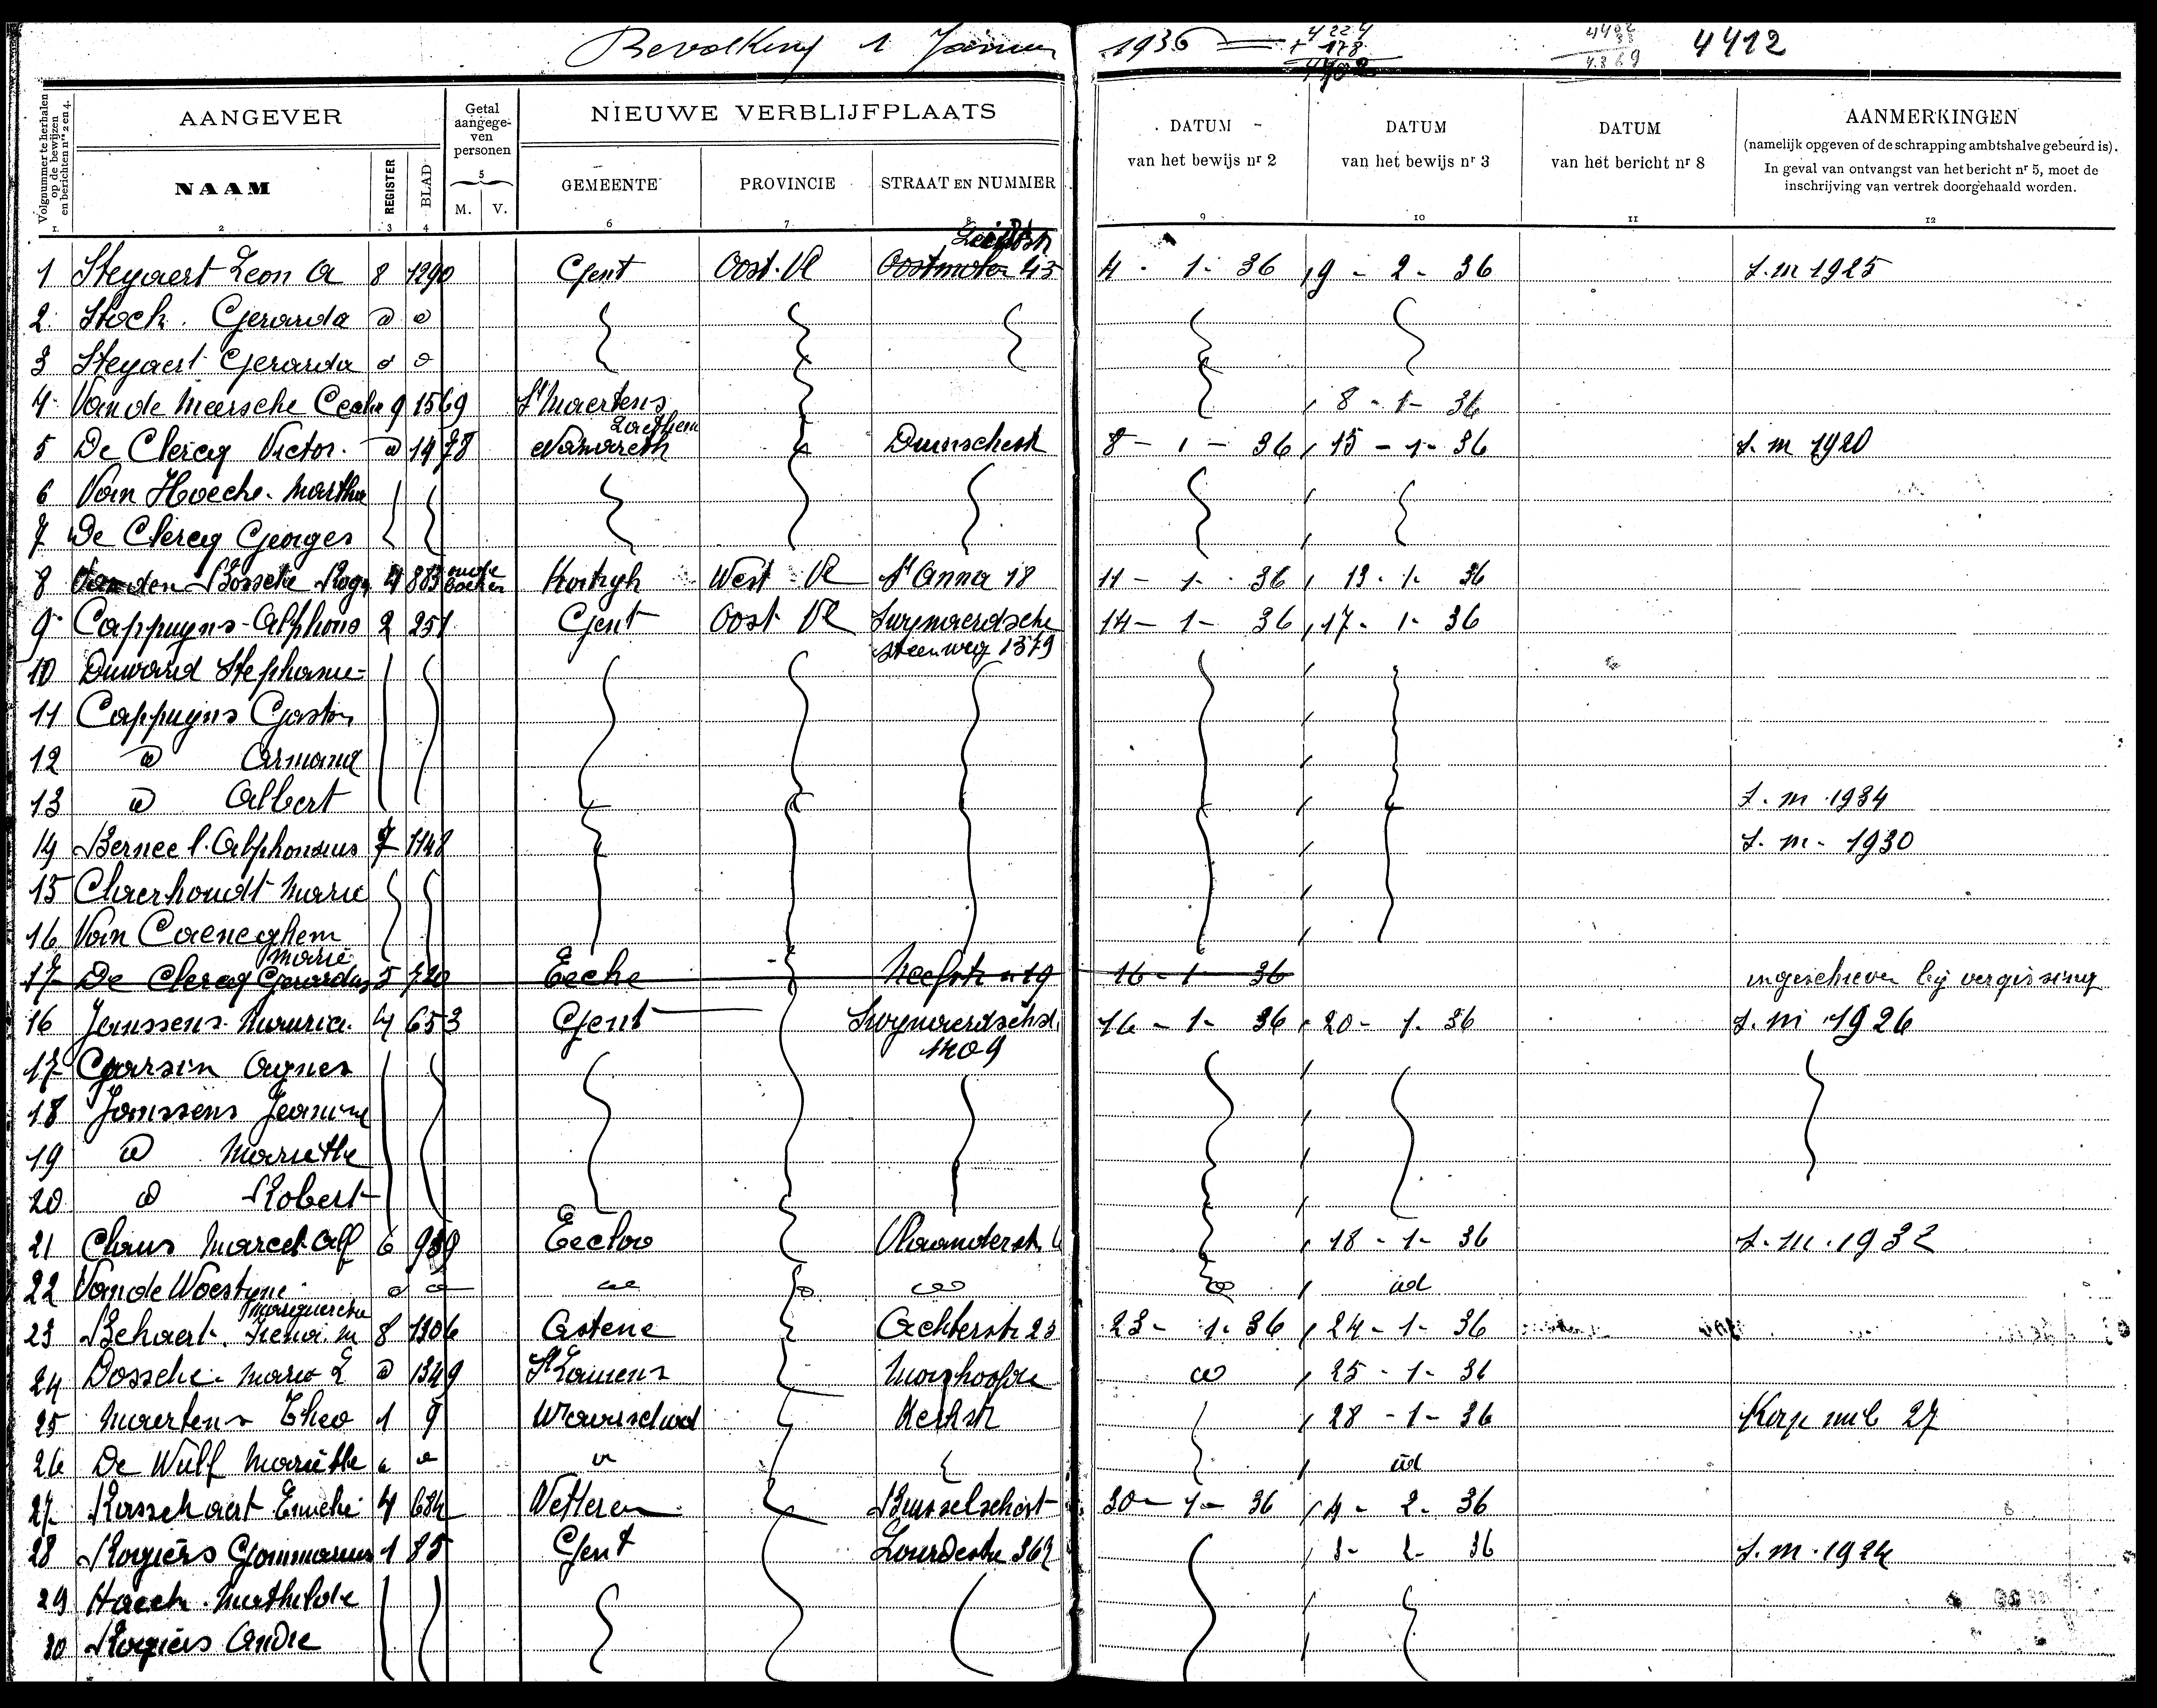 Bevolking 1 Januari 1936 4224 + 178 4402 4402 33 4369 4412
AANGEVER
Getal aangegeven personen
NIEUWE VERBLIJFPLAATS
Volgnummer te herhalen op de bewijzen en berichten nrs 2 en 4.
NAAM
REGISTER
BLAD
M. V.
GEMEENTE
PROVINCIE
STRAAT EN NUMMER
DATUM van het bewijs nr 2
DATUM van het bewijs nr 3
DATUM van het bericht nr 8
AANMERKINGEN
(namelijk opgeven of de schrapping ambtshalve gebeurd is).
In geval van ontvangst van het bericht nr 5, moet de
inschrijving van vertrek doorgehaald worden.
1. 2 3 4 5 6 7 8 9 10 11 12
1 Steyaert Leon A 8 1290 Gent Oost. Vl 43 4 - 1 - 36 19 - 2 - 36 L. m 1925
2 Stock. Gerarda d d
3 Steyaert Gerarda d d
4 Van de Meersche 9 1569 St Maertens Laethem 8 - 1 - 36
5 De Clercq Victor. d 1478 Nazareth 8 - 1 - 36 15 - 1 - 36 L. m 1920
6 Van Hoecke. Martha
7 De Clercq Georges
8 Van den Bossche Rog. 4 883 oude boeken Kortryk West Vl St Anna 18 11 - 1 - 36 13 - 1 - 36
9 Cappuyns Alphons 2 251 Gent Oost Vl Zwynaerdsche steenweg 14 - 1 - 36 17 - 1 - 36
10 Stephanie
11 Cappuyns Gaston
12 d Armand
13 d Albert L. m. 1934
14 Alphonsus 7 1148 L. m. 1930
15 Claerhoudt Marie
16 Van Caeneghem Marie
17 De Clercq Gerardus 5 720 Eecke 16 - 1 - 36 ingeschreven bij vergissing
16 Janssens Mauric. 4 653 Gent Zwynaerdschst. 16 - 1 - 36 20 - 1 - 36 L. m 1926
1209
17 Agnes
18 Janssens Jeannine
19 d Mariethe
20 d Robert
21 Claus Marcel Alf 6 939 Eecloo Vlaanderstr. 18 - 1 - 36 L. m. 1932
22 Van de Woestyne Margueretha d d id
23 8 1306 Astene Achterstr 23 - 1 - 36 24 - 1 - 36
24 Dossche Marie L d 1349 St Laurens 25 - 1 - 36
25 Maertens Theo 1 9 Waarschoot Kerkstr 28 - 1 - 36 27
26 De Wulf Mariëthe id
27 Rasschaert 4 Wetteren Brusselschest 30 - 1 - 36 4 - 2 - 36
28 Rogiers Gommarus 1 85 Gent Lourdestr 3 - 2 - 36 L. m. 1924
29 Haeck. Mathilde
30 Rogiers Andre